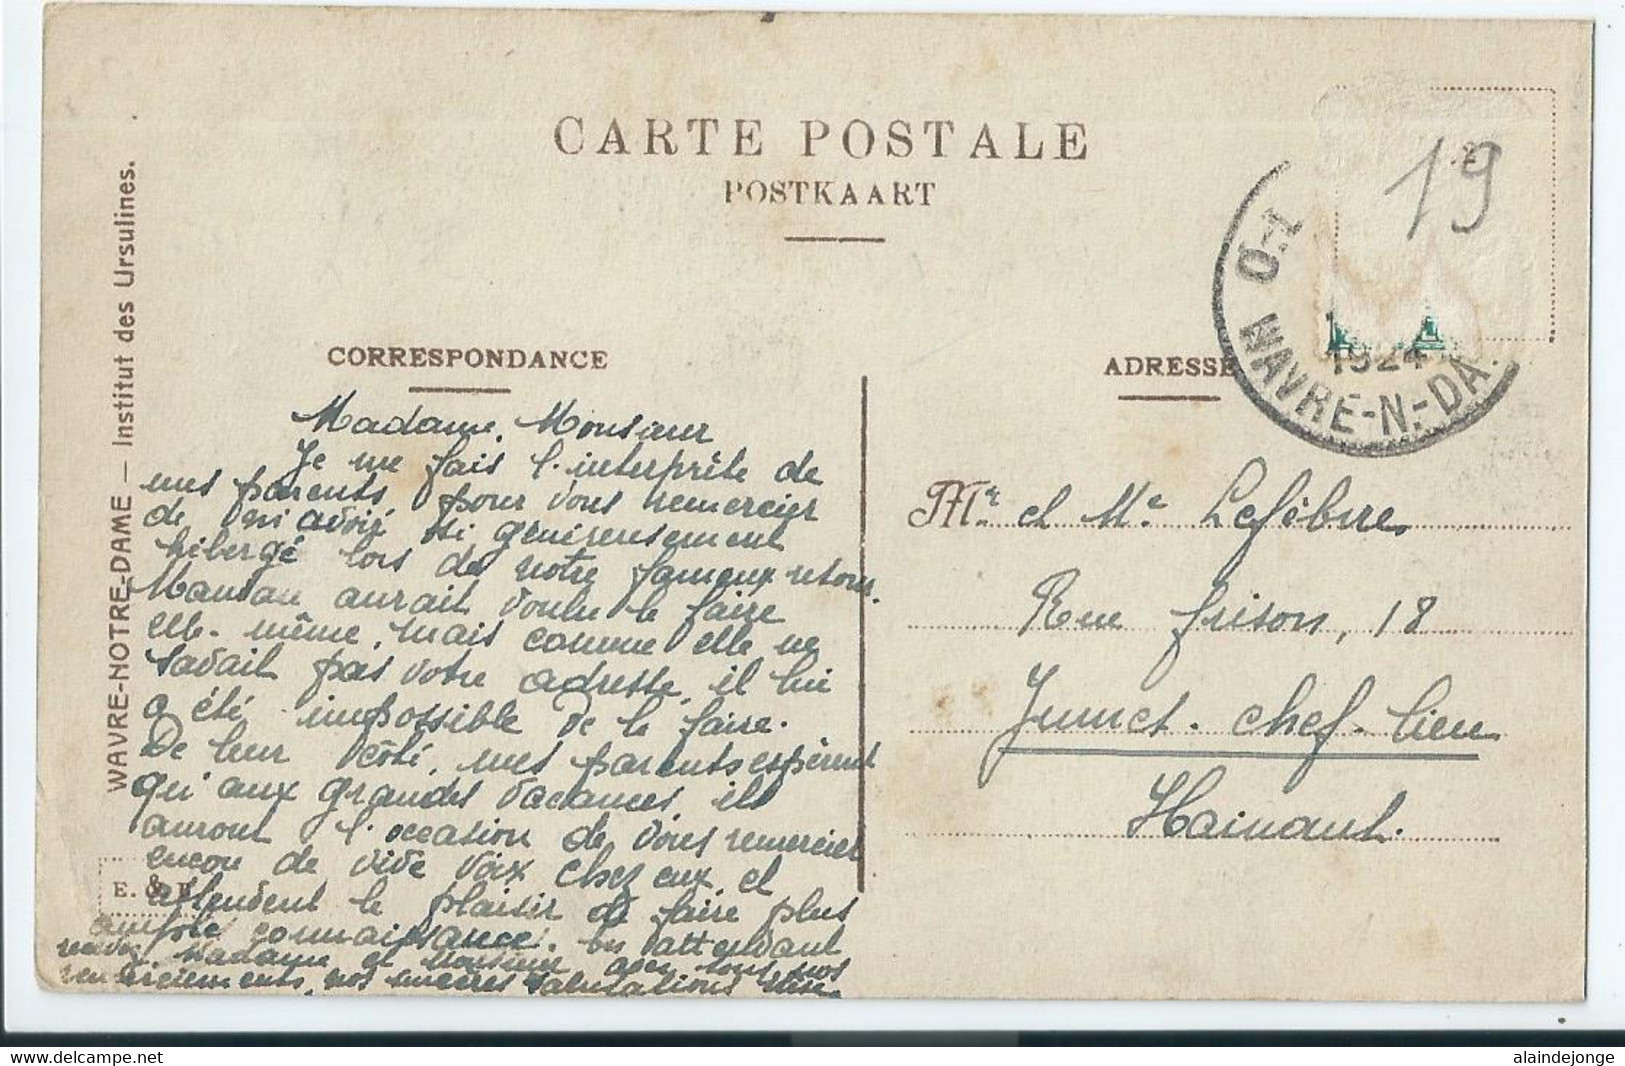 CARTE POSTALE
POSTKAART
WAVRE-NOTRE-DAME — Institut des Ursulines.
19
1924
WAVRE-N.-DA.
CORRESPONDANCE
ADRESSE
Madame, Monsieur
Je me fais l'interprète de
mes parents pour vous remercier
de m'avoir si généreusement
hébergé lors de notre fameux retour.
Maman aurait voulu le faire
elle-même, mais comme elle ne
savait pas votre adresse, il lui
a été impossible de le faire.
De leur côté, mes parents espèrent
qu'aux grandes vacances, ils
auront l'occasion de vous remercier
encore de vive voix chez eux, et
attendent le plaisir de faire plus
ample connaissance. En attendant
Madame et Monsieur avec tous nos
remerciements, nos sincères salutations
E. &
Mr. et Me. Lefèbvre
Rue Frison, 18
Jumet-chef-lieu
Hainaut.
alaindejonge
delcampe.net